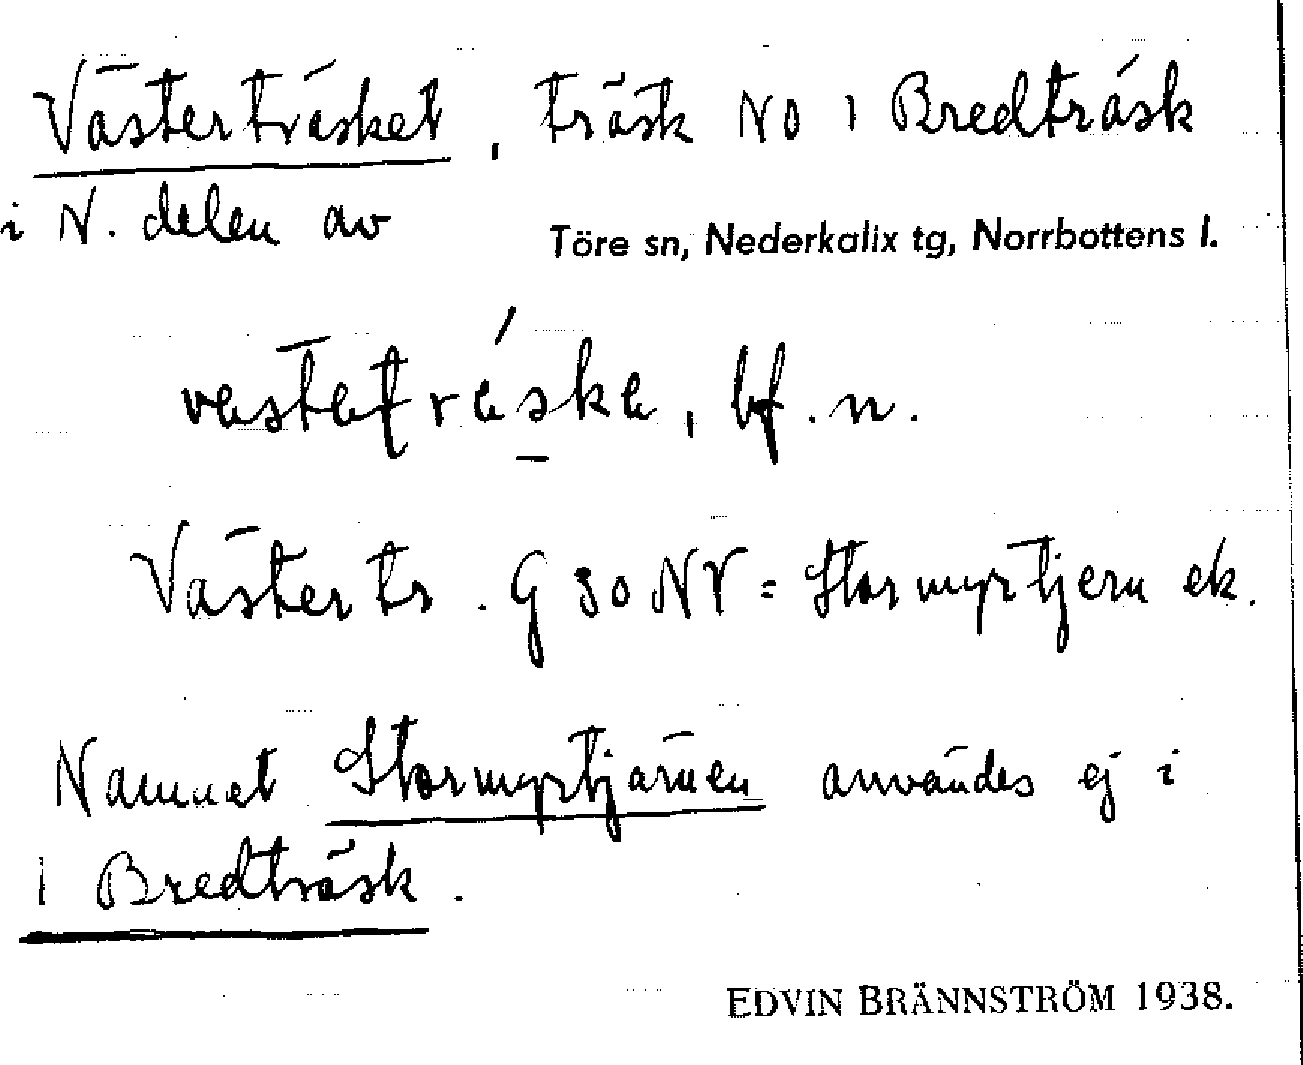 Västerträsket, träsk NO i Bredträsk
i N. delen av Töre sn, Nederkalix tg, Norrbottens l.
vestetreske, bf. n.
Västertr. G 80 NV = Stormyrtjern ek.
Namnet Stormyrtjärnen användes ej i
i Bredträsk.
EDVIN BRÄNNSTRÖM 1938.